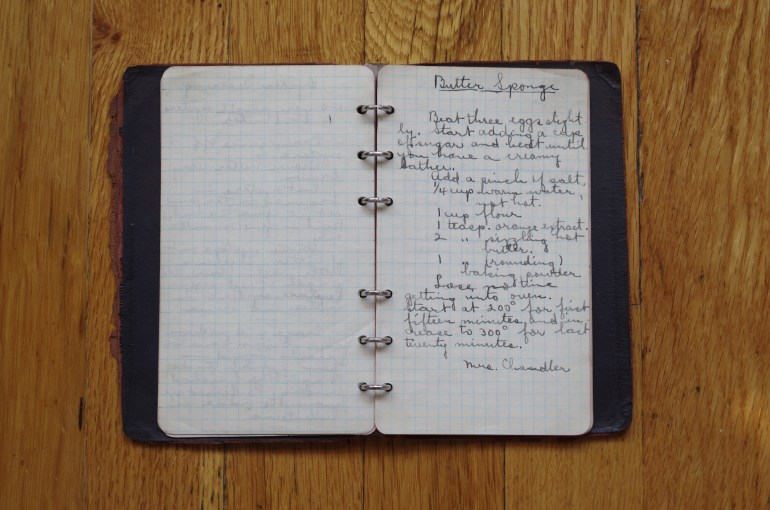 Butter Sponge
Beat three eggs slight
ly. Start adding a cup
of sugar and beat until
you have a creamy
bather.
Add a pinch of salt,
1/4 cup warm water,
not hot.
1 cup flour
1 teasp. orange extract.
2 " sizzling hot
butter.
1 " (rounding)
baking powder
Lose no time
getting into oven.
Start at 200° for first
fifteen minutes and in
crease to 300° for last
twenty minutes.
Mrs. Chandler